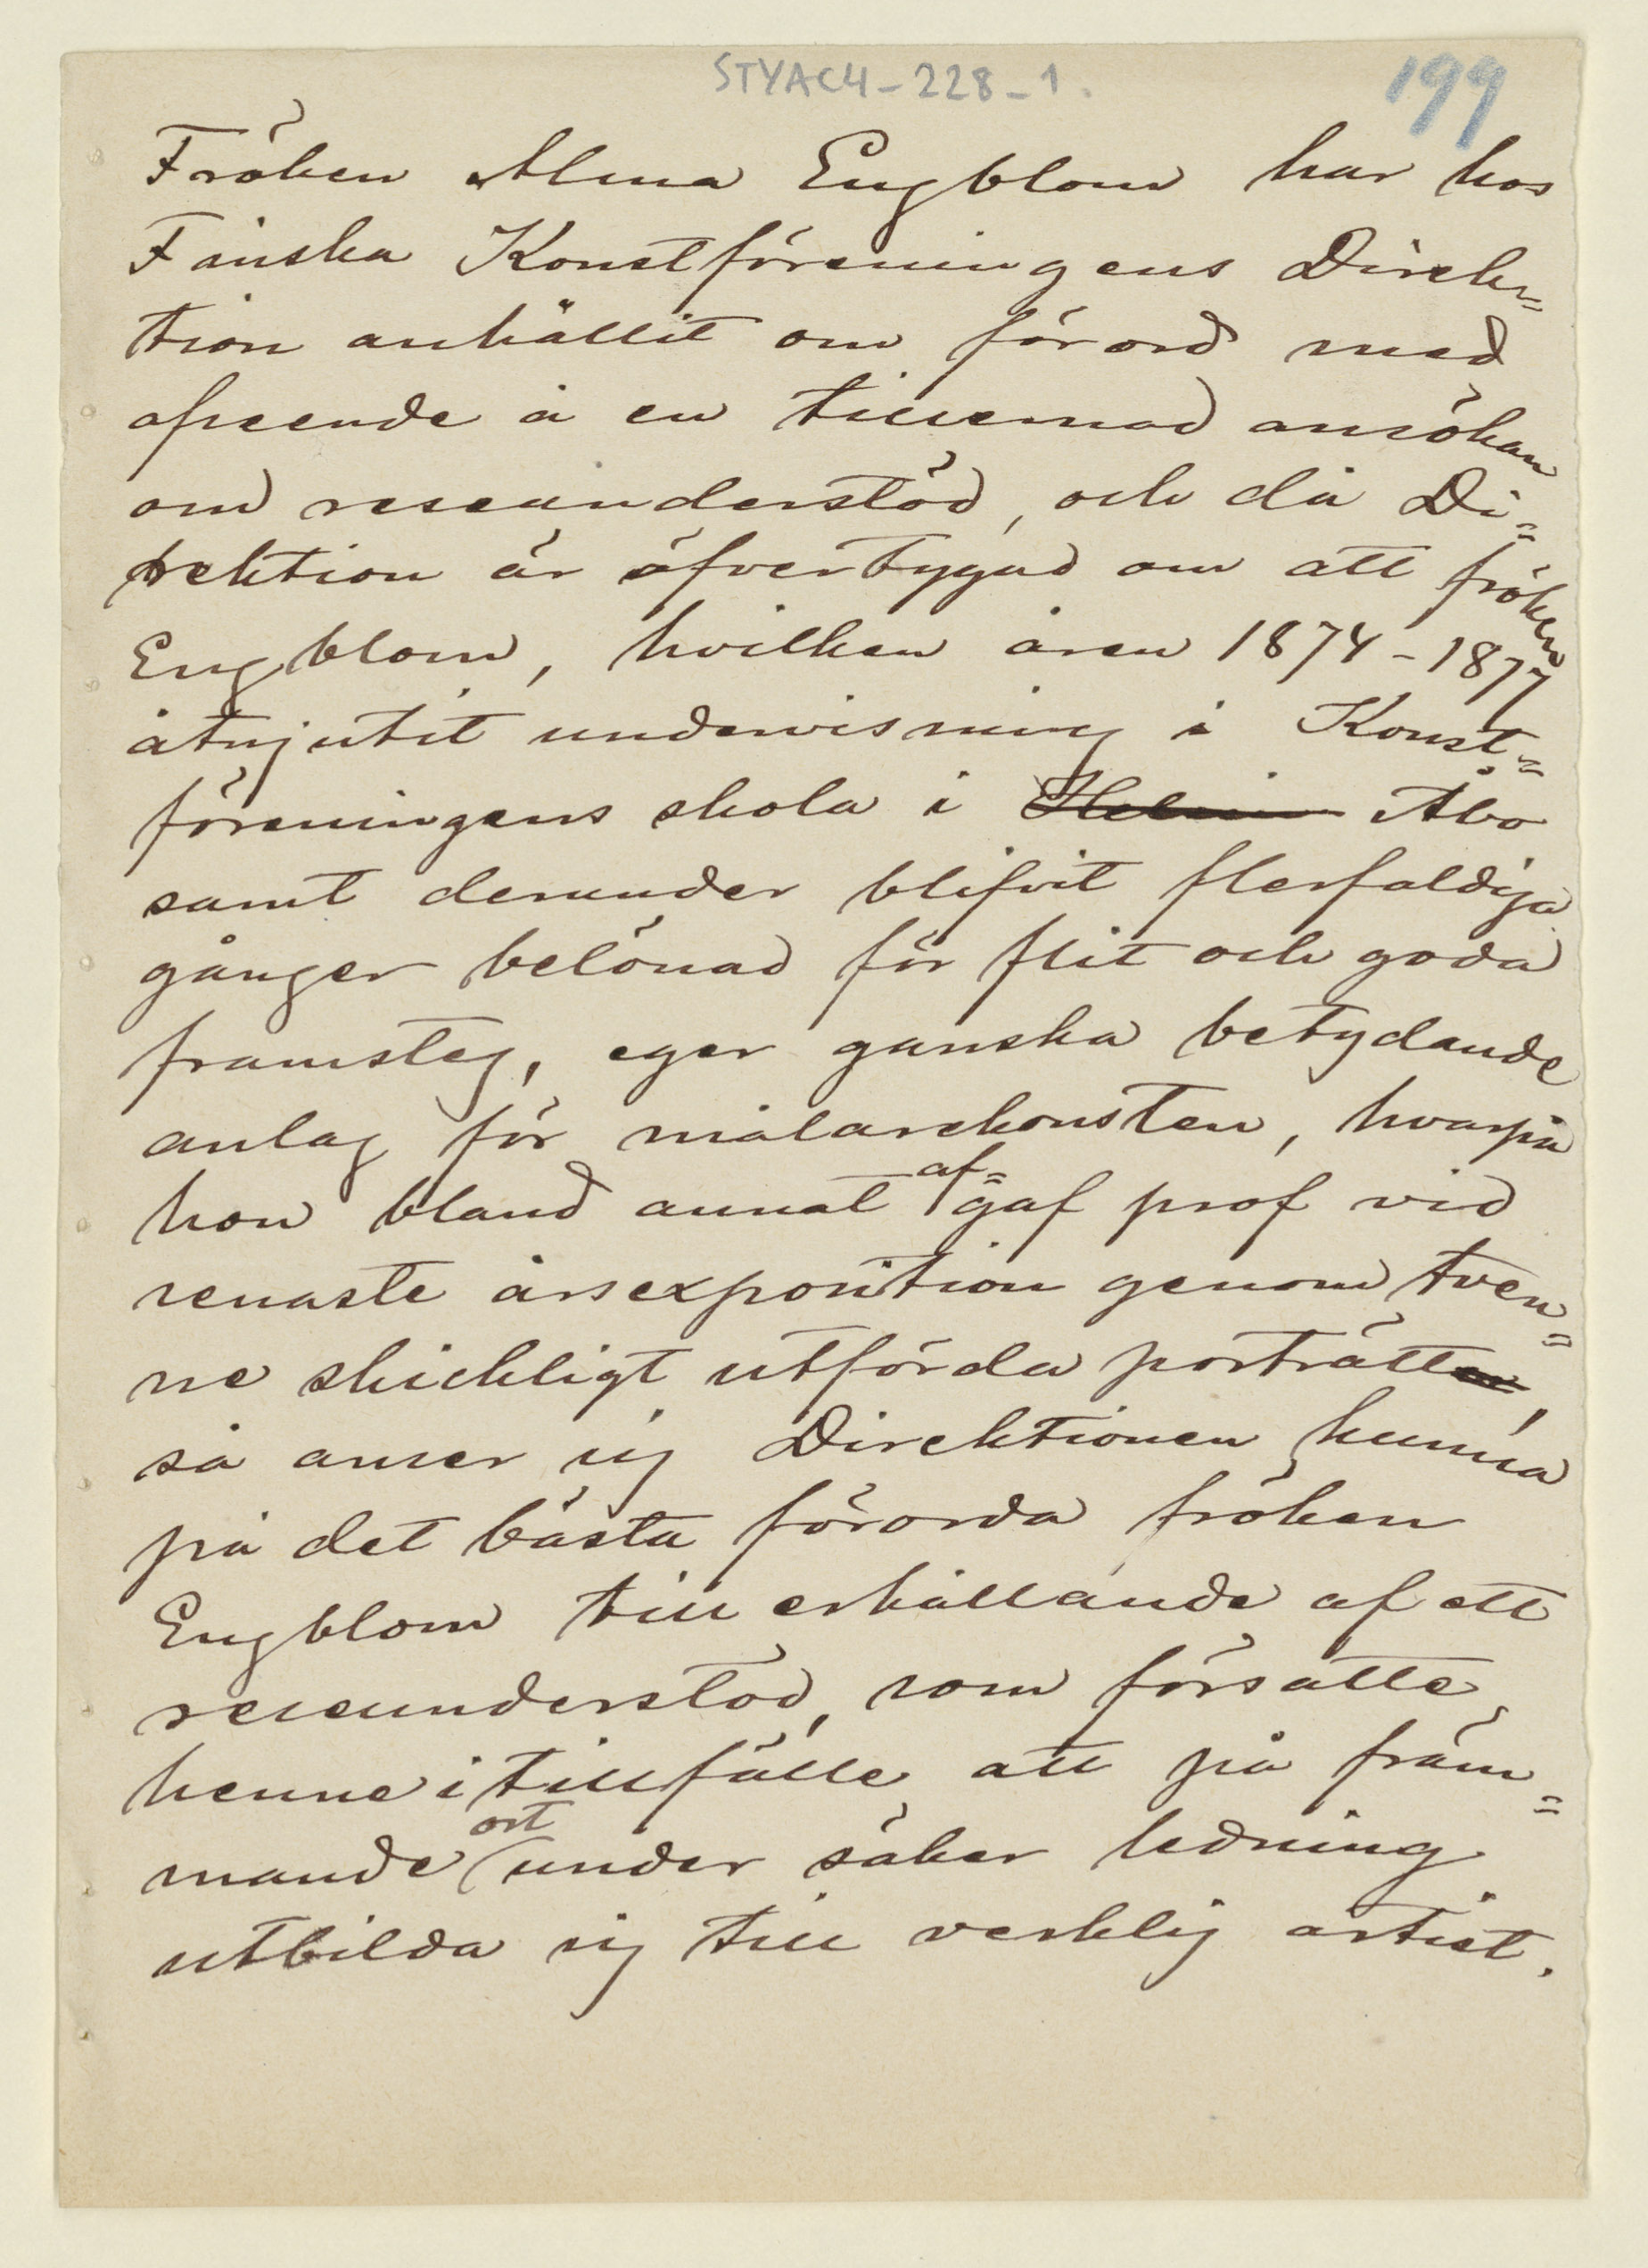 STYAC4-228-1.
199
Fröken Alma Engblom har hos
Finska Konstföreningens Direk=
tion anhållit om förord med
afseende å en tillernad ansökan
om reseunderstöd, och då Di=
rektion är öfvertygad om att fröken
Engblom, hvilken åren 1874-1877
åtnjutit undervisning i Konst=
föreningens skola i Helsin Åbo
samt derunder blifvit flerfaldiga
gånger belönad för flit och goda
framsteg, eger ganska betydande
anlag för målarekonsten, hvarpå
hon bland annat af=gaf prof vid
senaste årsexposition genom tven=
ne skickligt utförda porträtter,
så anser sig Direktionen kunna
på det bästa förorda fröken
Engblom till erhållande af ett
reseunderstöd, som försatte
henne i tillfälle att på främ=
mande ort under säker ledning
utbilda sig till verklig artist.